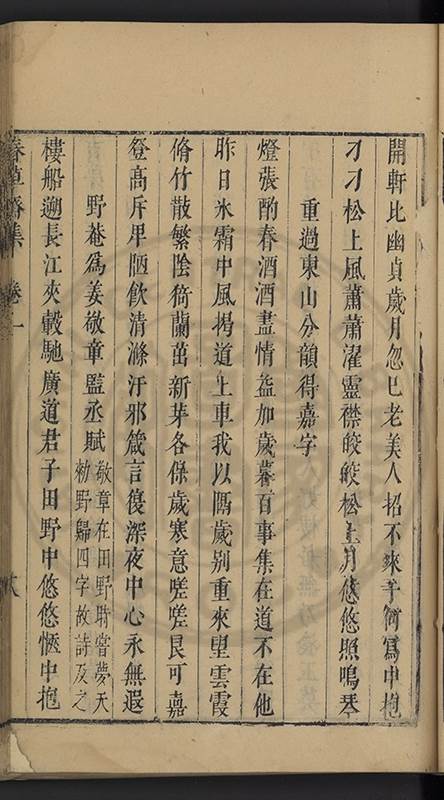 開軒比幽貞歲月忽已老美人招不來予何寫中抱
刁刁松上風蕭蕭濯靈襟皎皎松上月悠悠照鳴琴
重過東山分韻得嘉字
昨日氷霜中風揚道上車我以隅歲别重來望雲霞
燈張酌春酒酒盡情益加歲暮百事集在道不在他
脩竹散繁陰猗蘭茁新芽各保歲寒意嗟嗟良可嘉
登高斥卑陋飲清滌汙邪箴言復深夜中心永無遐
野菴爲姜敬章監丞賦
敬章在田野時嘗夢天
勑野歸四字故詩及之
樓船遡長江夾轂馳廣道君子田野中悠悠愜中抱
春草齋集 卷一